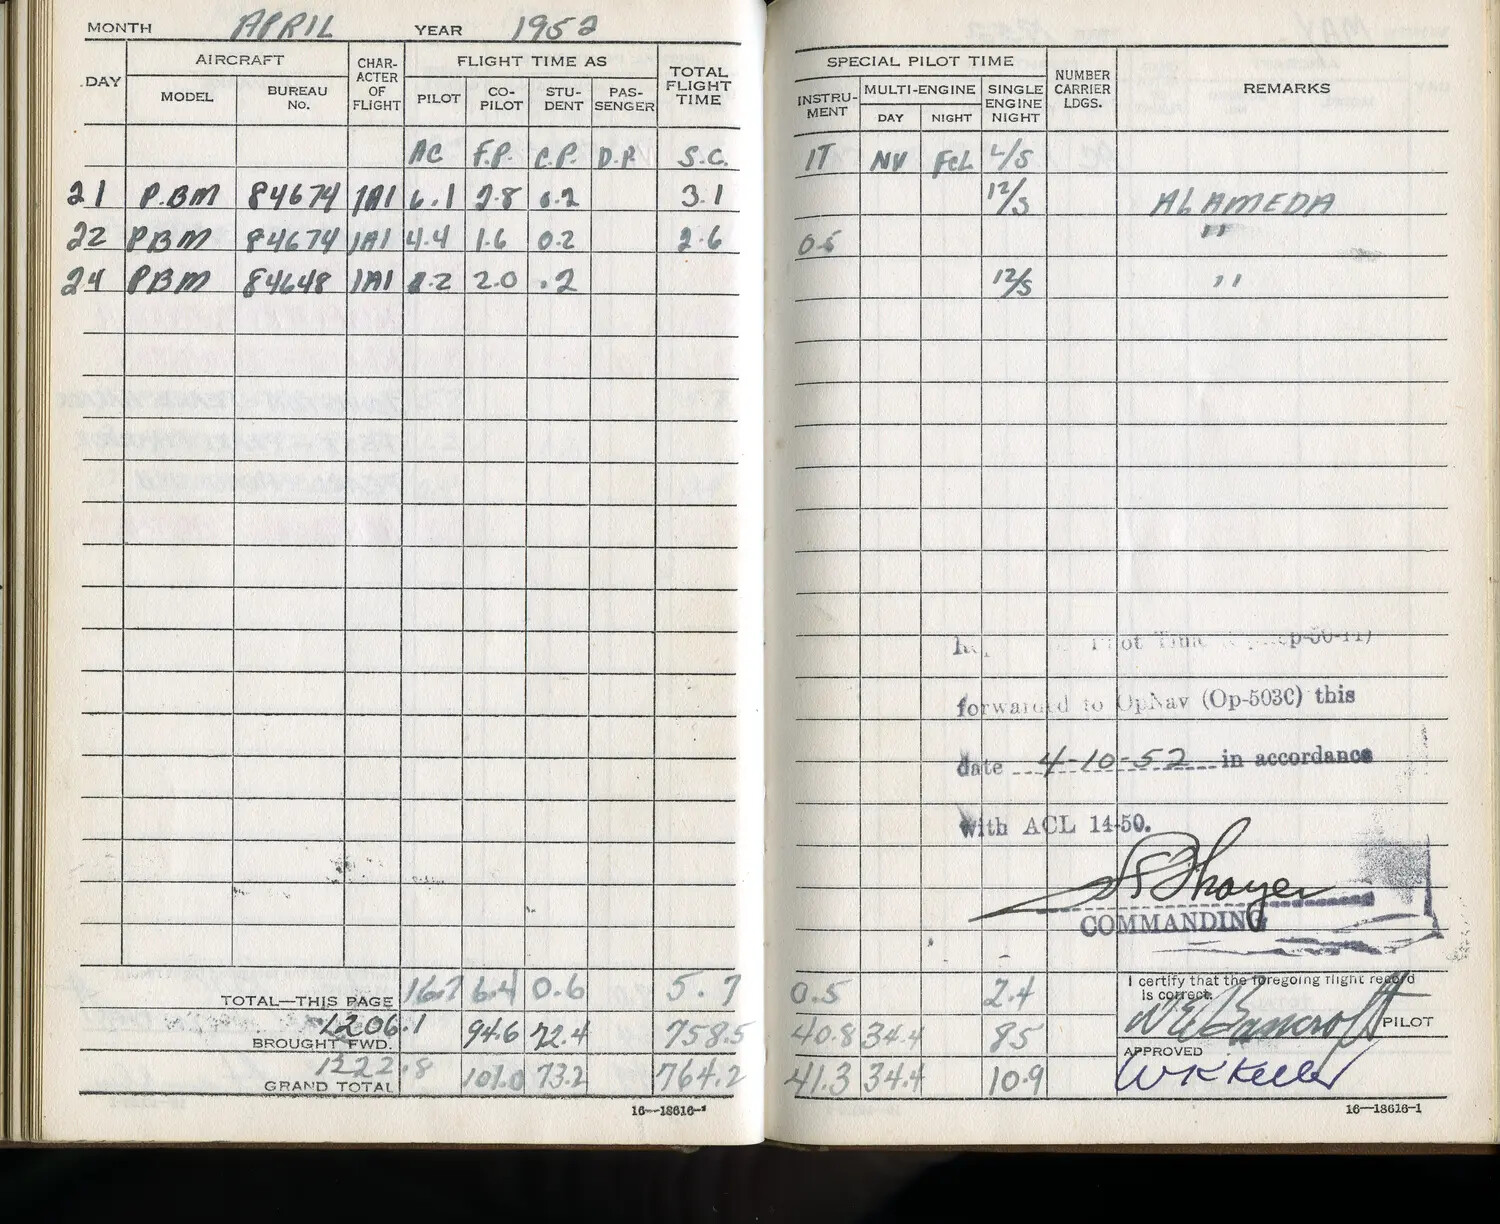 MONTH APRIL YEAR 1952
DAY AIRCRAFT CHAR-ACTER OF FLIGHT FLIGHT TIME AS TOTAL FLIGHT TIME
MODEL BUREAU No. PILOT CO-PILOT STU-DENT PAS-SENGER
AC F.P. C.P. D.P. S.C.
21 P.BM 84674 1A1 6.1 2.8 0.2 3.1
22 PBM 84674 1A1 4.4 1.6 0.2 2.6
24 PBM 84648 1A1 2.0 .2
TOTAL—THIS PAGE 16.7 6.4 0.6 5.7
BROUGHT FWD. 1206.1 94.6 72.4 758.5
GRAND TOTAL 1222.8 101.0 73.2 764.2
16—18616-1
SPECIAL PILOT TIME NUMBER CARRIER LDGS. REMARKS
INSTRU-MENT MULTI-ENGINE SINGLE ENGINE NIGHT
DAY NIGHT
IT NV FCL L/S
12/S ALAMEDA
0.5 "
12/S "
Pilot Time
forwarded to OpNav (Op-503C) this
date 4-10-52 in accordance
with ACL 14-50.
Thayer
COMMANDING
I certify that the foregoing flight record is correct.
0.5 2.4
WE Bancroft PILOT
40.8 34.4 85
APPROVED
41.3 34.4 10.9
WK Keller
16—18616-1